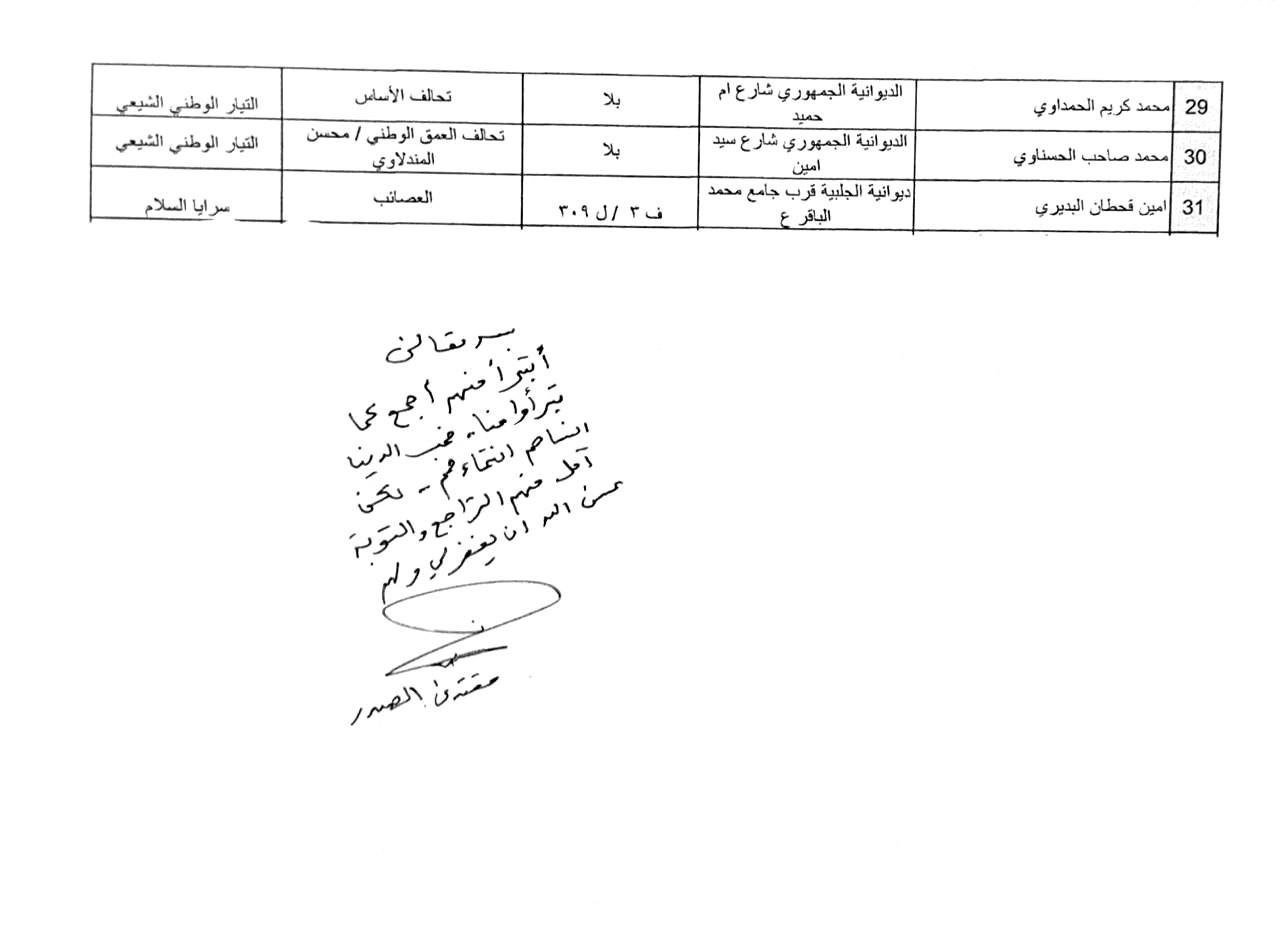 29 محمد كريم الحمداوي الديوانية الجمهوري شارع ام حميد بلا تحالف الأساس التيار الوطني الشيعي
30 محمد صاحب الحسناوي الديوانية الجمهوري شارع سيد امين بلا تحالف العمق الوطني / محسن المندلاوي التيار الوطني الشيعي
31 امين قحطان البديري ديوانية الجلبية قرب جامع محمد الباقر ع ف ٣ / ل ٣٠٩ العصائب سرايا السلام
بسمه تعالى
أتبرأ منهم أجمع كما
تبرأوا منا.. فحب الدنيا
انساهم انتماءهم.. لكني
آمل منهم التراجع والتوبة
عسى الله ان يغفر لي ولهم
مقتدى الصدر